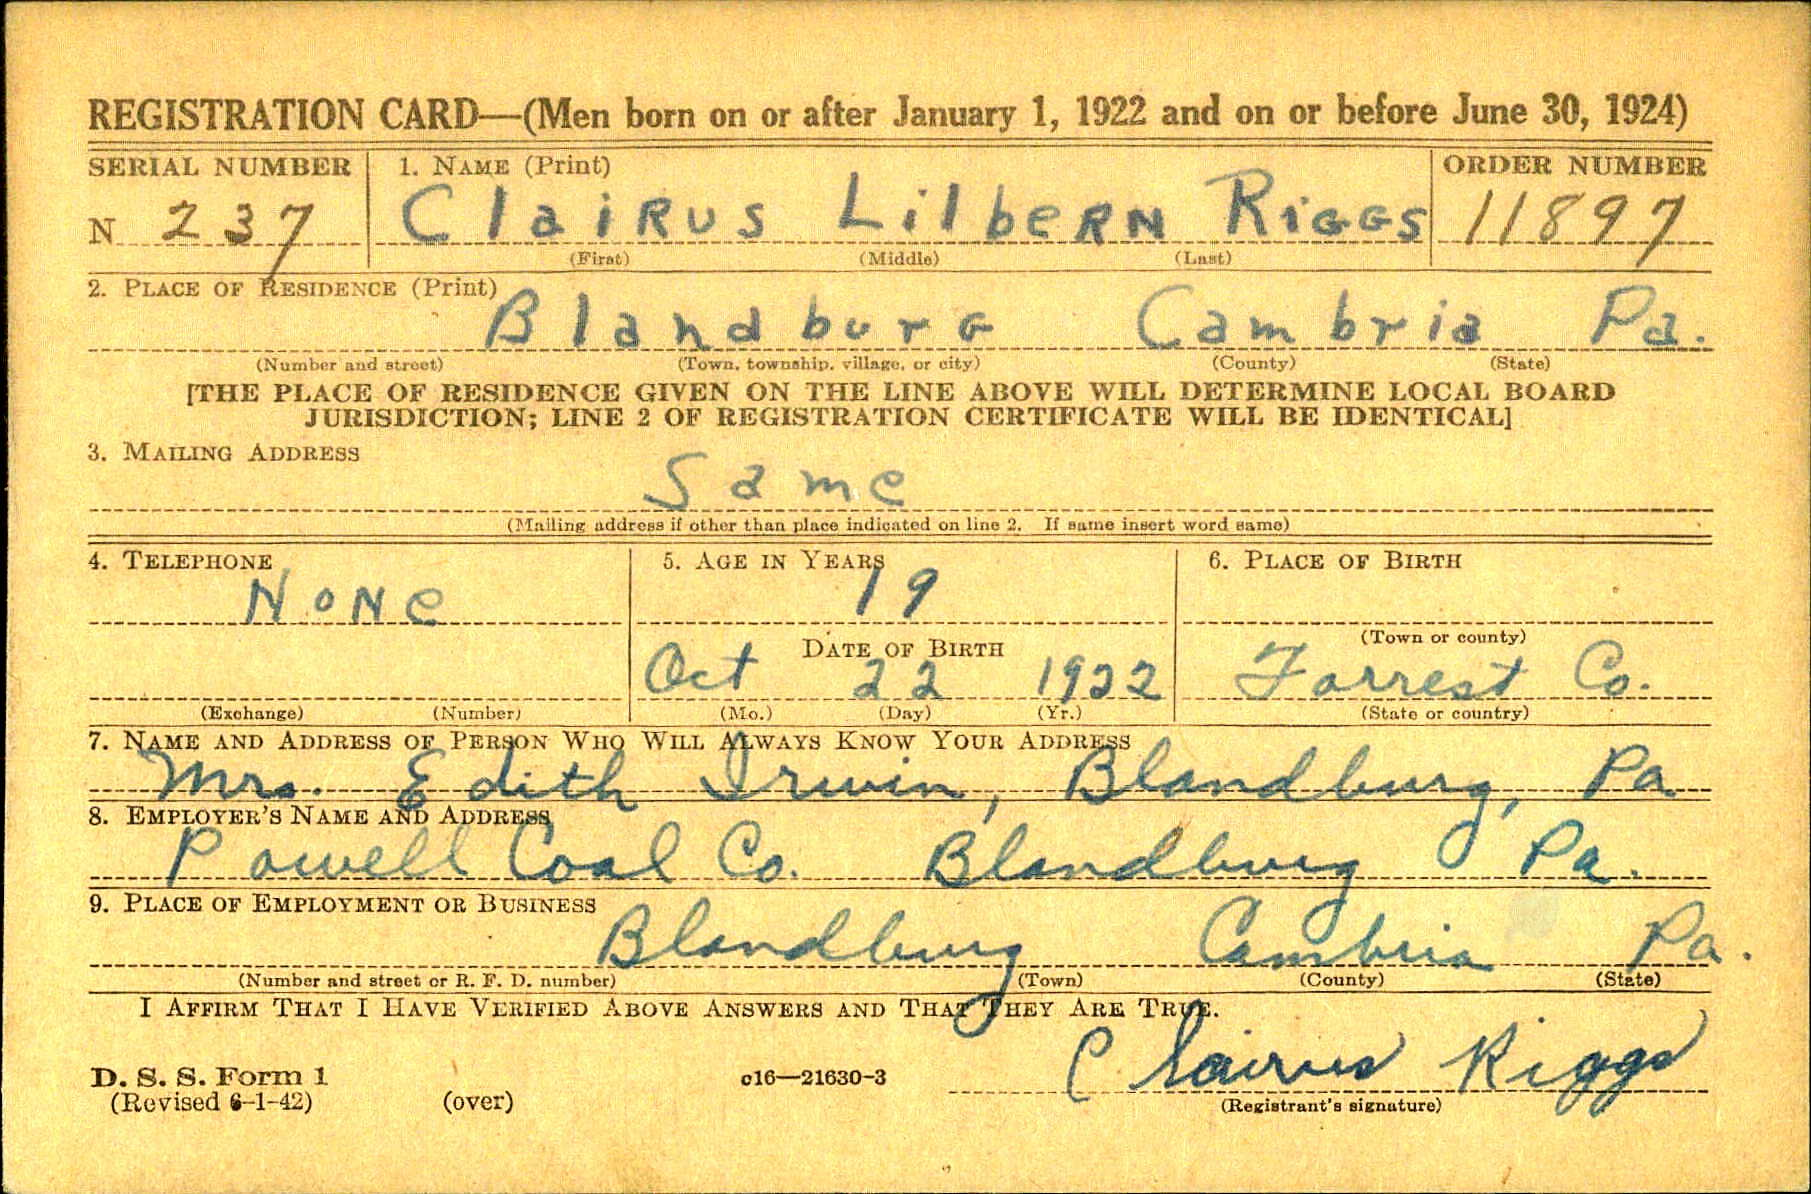 REGISTRATION CARD—(Men born on or after January 1, 1922 and on or before June 30, 1924)
SERIAL NUMBER 1. NAME (Print) ORDER NUMBER
N 237 Clairus Lilbern Riggs 11897
(First) (Middle) (Last)
2. PLACE OF RESIDENCE (Print)
Blandburg Cambria Pa.
(Number and street) (Town, township, village, or city) (County) (State)
[THE PLACE OF RESIDENCE GIVEN ON THE LINE ABOVE WILL DETERMINE LOCAL BOARD
JURISDICTION; LINE 2 OF REGISTRATION CERTIFICATE WILL BE IDENTICAL]
3. MAILING ADDRESS
Same
(Mailing address if other than place indicated on line 2. If same insert word same)
4. TELEPHONE 5. AGE IN YEARS 6. PLACE OF BIRTH
None 19
DATE OF BIRTH (Town or county)
Oct 22 1922 Forrest Co.
(Exchange) (Number) (Mo.) (Day) (Yr.) (State or country)
7. NAME AND ADDRESS OF PERSON WHO WILL ALWAYS KNOW YOUR ADDRESS
Mrs. Edith Irwin, Blandburg, Pa
8. EMPLOYER'S NAME AND ADDRESS
Powell Coal Co. Blandburg Pa.
9. PLACE OF EMPLOYMENT OR BUSINESS
Blandburg Cambria Pa.
(Number and street or R. F. D. number) (Town) (County) (State)
I AFFIRM THAT I HAVE VERIFIED ABOVE ANSWERS AND THAT THEY ARE TRUE.
Clairus Riggs
D. S. S. Form 1 c16—21630-3
(Revised 6-1-42) (over) (Registrant's signature)